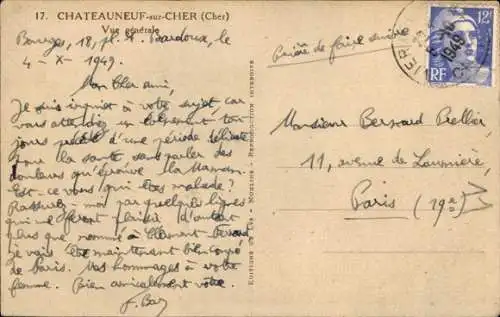 17. CHATEAUNEUF-sur-CHER (Cher)
Vue générale
Bourges, 18, pl. St Bardoux, le
4 - X - 1949.
Mon cher ami,
Je suis inquiet à votre sujet, car
vous attendez un événement tou
jours d'une période délicate
pour la santé sans parler des
douleurs qu'éprouve la Maman.
Est-ce vous qui êtes malade?
Rassurez-moi par quelques lignes
qui me feront plaisir d'autant
plus que nommé à Clermont-Ferrand
je vais être maintenant bien
de Paris. Mes hommages à votre
femme. Bien amicalement vôtre.
Prière de faire suivre
Monsieur Bernard
11, avenue de Laumière,
Paris (19e)
12F
RF
1949
REPRODUCTION INTERDITE